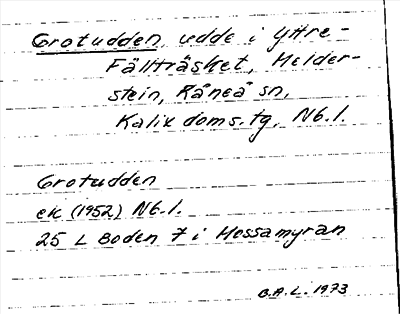 Grotudden, udde i Yttre-
Fällträsket, Melder-
stein, Råneå sn,
Kalix doms.tg, Nb.l.
Grotudden
ek (1952) Nb.l.
25 L Boden 7 i Mossamyran
G.A.L. 1973